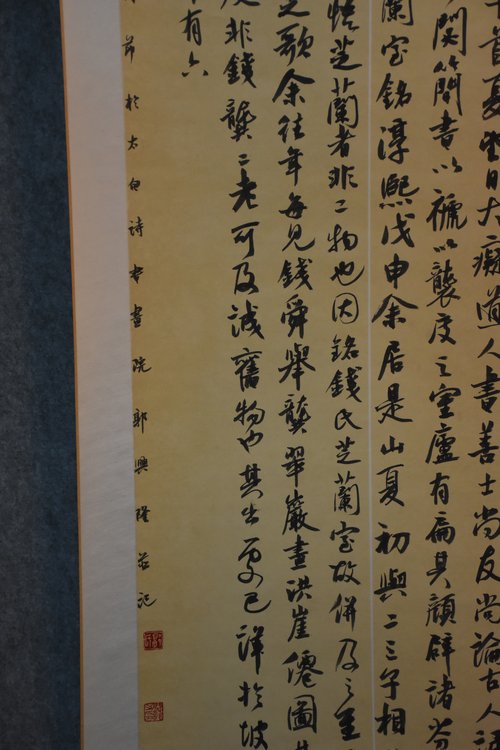 首夏望日大癡道人書善士尚友尚論古人
閱簡書以襪以襲度之室廬有扁其顏辟諸芬
蘭室銘淳熙戊申余居是山夏初與二三子相
悟芝蘭者非二物也因銘錢氏芝蘭室故併及之至
之歌余往年每見錢舜舉龔翠巖畫洪崖僊圖
非錢龔二老可及誠舊物也其出處已詳於坡
有六
節於太白詩書畫院郭興隆並記